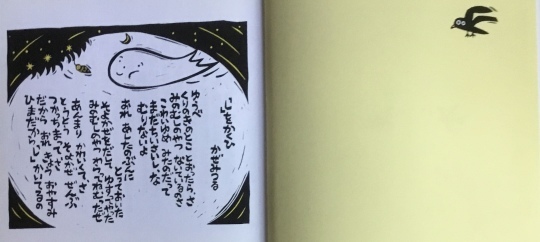 「し」をかくひ
かぜみつる
ゆうべ
くりのきのとこ とおったら、さ
みのむしのやつ ないているのさ
こわいゆめ みたのだって
まだちいさいしな
むりないよ
おれ あしたのぶんに
とっておいた
そよかぜをだして ゆすってやった
みのむしのやつ わらってねむったぜ
あんまり かわいくて、さ
とうとう そよかぜ ぜんぶ
つかっちまって、さ
だから おれ きょう おやすみ
ひまだから「し」かいてるの